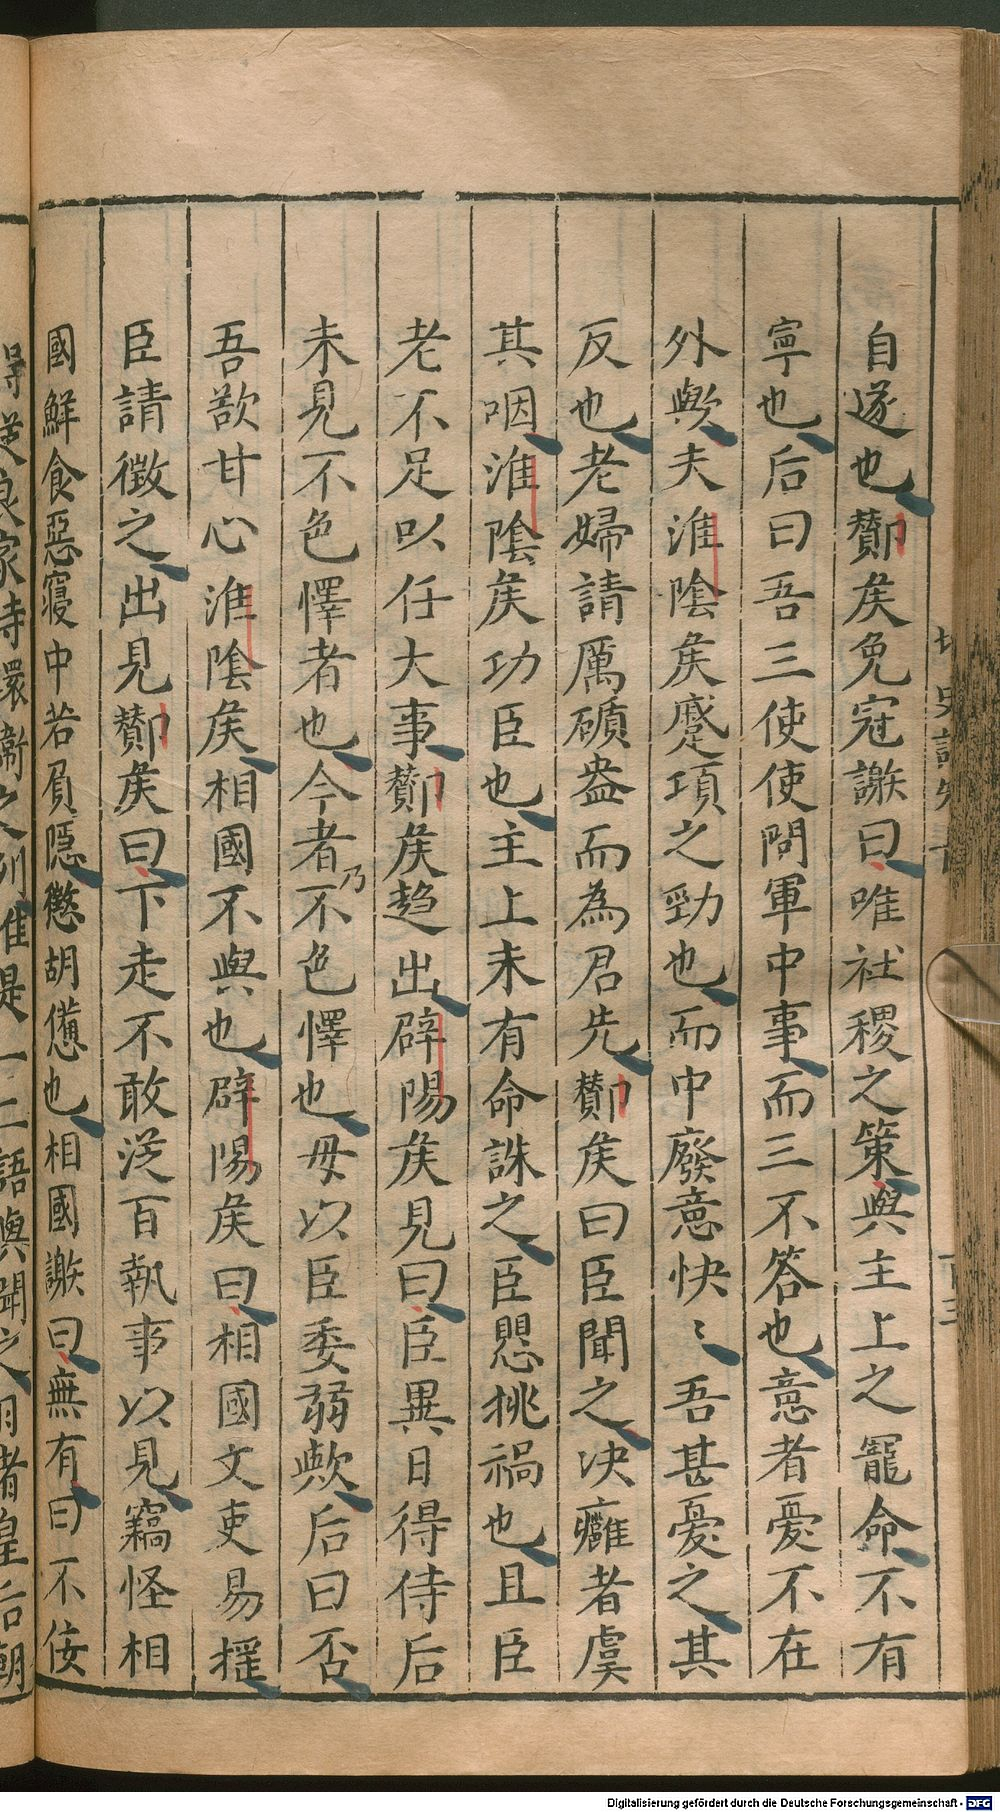 自遂也酇矦免冠謝曰唯社稷之策與主上之寵命不有
寧也后曰吾三使使問軍中事而三不答也意者憂不在
外歟夫淮陰矦蹙項之勁也而中廢意怏〻吾甚憂之其
反也老婦請厲礩盎而為君先酇矦曰臣聞之決癰者虞
其咽淮陰矦功臣也主上未有命誅之臣愳挑禍也且臣
老不足以任大事酇矦趋出辟陽矦見曰臣異日得侍后
未見不色懌者也今者乃不色懌也毋以臣委弱歟后曰否
吾欲甘心淮陰矦相國不與也辟陽矦曰相國文吏易摇
臣請徵之出見酇矦曰下走不敢泛百執事以見竊怪相
國鮮食惡寢中若有隱憖胡憊也相國謝曰無有曰不佞
家侍環衛之列惟是一二語與聞之明者皇后朝
Digitalisierung gefördert durch die Deutsche Forschungsgemeinschaft - DFG